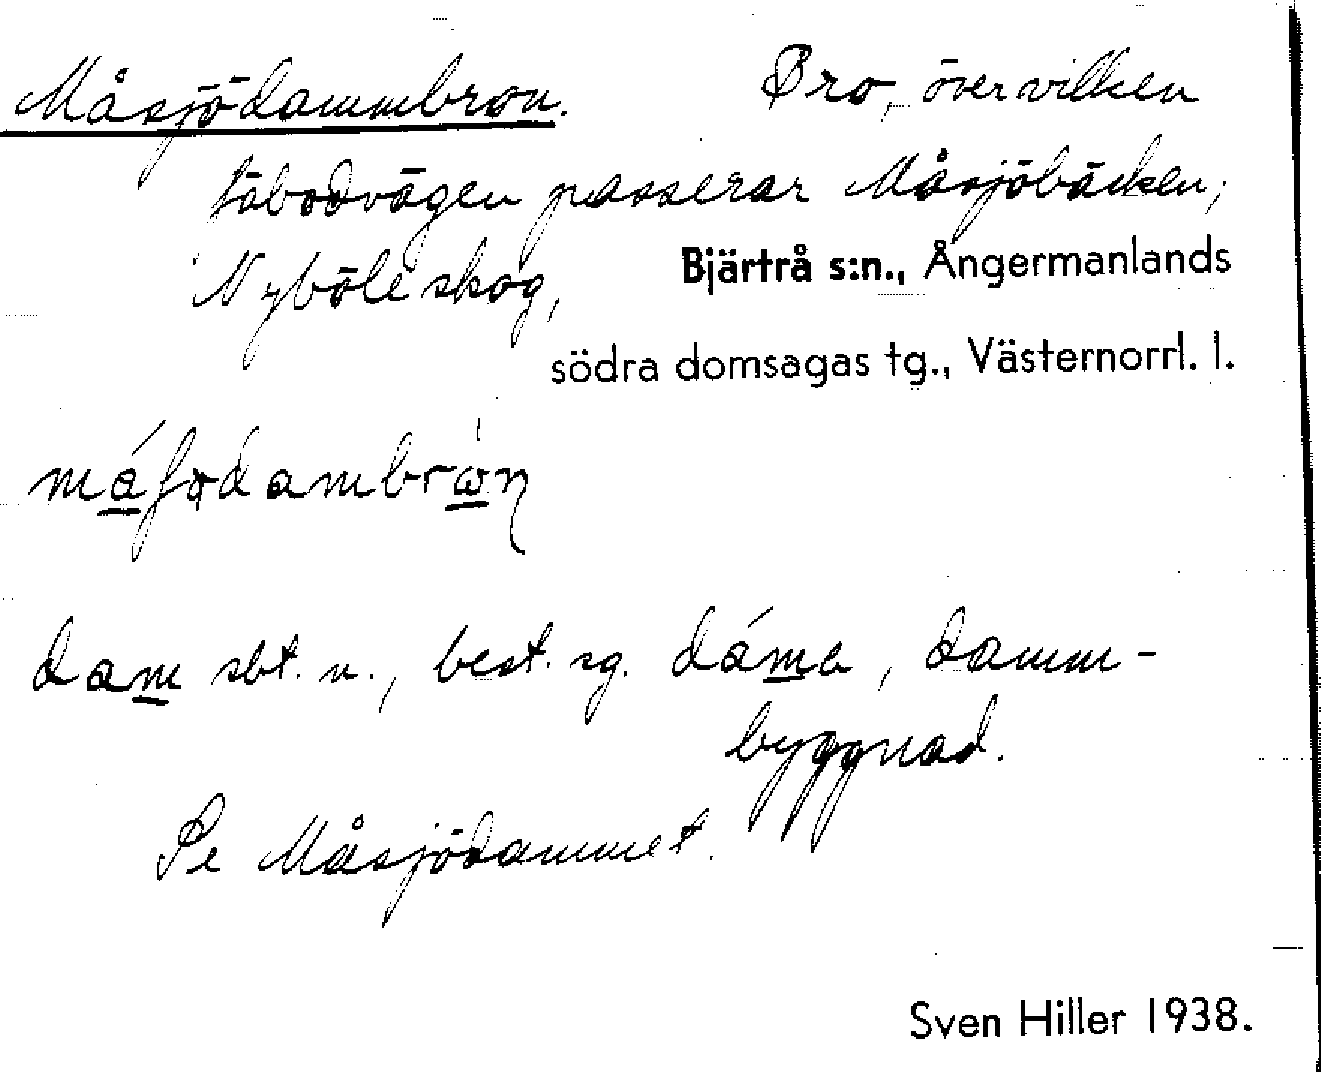 Måsjödammbron. Bro, över vilken
fäbodvägen passerar Måsjöbäcken;
Nyböle skog, Bjärtrå s:n., Ångermanlands
södra domsagas tg., Västernorrl. l.
dam sbt. n., best. sg. dáma, damm-
byggnad.
Se Måsjödammet.
Sven Hiller 1938.